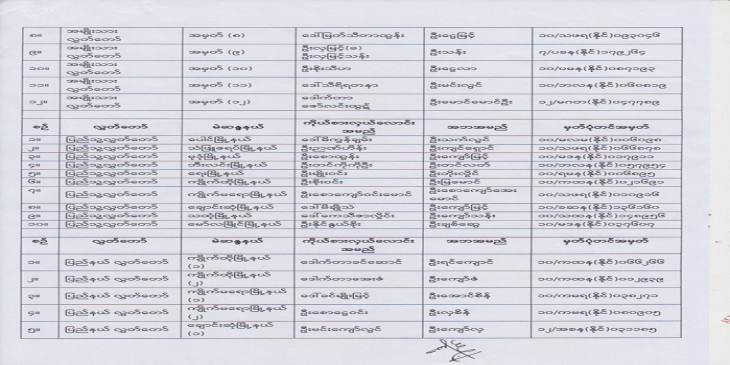 ၈။ အမျိုးသား လွှတ်တော် အမှတ် (၈) ဒေါ်မြတ်သီတာထွန်း ဦးငွေမြင့် ၁၀/သဖရ(နိုင်)၀၉၃၀၄၆
၉။ အမျိုးသား လွှတ်တော် အမှတ် (၉) ဦးလှမြင့်(ခ) ဦးလှမြင့်သန်း ဦးသန်း ၇/ပခန(နိုင်)၁၇၉၂၆၄
၁၀။ အမျိုးသား လွှတ်တော် အမှတ် (၁၀) ဦးစိုးသီဟ ဦးငွေလာ ၁၀/ပမန(နိုင်)၀၈၇၁၉၃
၁၁။ အမျိုးသား လွှတ်တော် အမှတ် (၁၁) ဒေါ်သီရိရတနာ ဦးမင်းလွင် ၁၀/ဘလန(နိုင်)၀၆၀၈၁၉
၁၂။ အမျိုးသား လွှတ်တော် အမှတ် (၁၂) ဒေါက်တာ ဇော်လင်းထွဋ် ဦးမောင်မောင်ဦး ၁၂/မဂတ(နိုင်)၀၄၇၇၈၉
စဉ် လွှတ်တော် မဲဆန္ဒနယ် ကိုယ်စားလှယ်လောင်း အမည် အဘအမည် မှတ်ပုံတင်အမှတ်
၁။ ပြည်သူ့လွှတ်တော် ပေါင်မြို့နယ် ဒေါ်မိကွန်ချမ်း ဦးသက်လွင် ၁၀/မလမ(နိုင်)၀၀၆၀၉၈
၂။ ပြည်သူ့လွှတ်တော် သံဖြူဇရပ်မြို့နယ် ဦးဉာဏ်ဟိန်း ဦးကျင်ရှောင် ၁၀/သဖရ(နိုင်)၀၆၆၈၇၈
၃။ ပြည်သူ့လွှတ်တော် မုဒုံမြို့နယ် ဦးစောထွန်း ဦးကျော်မြင့် ၁၀/မဒန(နိုင်)၀၁၇၉၁၁
၄။ ပြည်သူ့လွှတ်တော် ဘီးလင်းမြို့နယ် ဦးတင်ကိုကိုဦး ဦးတင်လတ် ၁၀/ဘလန(နိုင်)၀၅၇၉၅၄
၅။ ပြည်သူ့လွှတ်တော် ရေးမြို့နယ် ဦးမျိုးဝင်း ဦးဘိုးလှိုင် ၁၀/ရမန(နိုင်)၀၀၆၈၉၅
၆။ ပြည်သူ့လွှတ်တော် ကျိုက်ထိုမြို့နယ် ဦးစိုးဝင်း ဦးမြမောင် ၁၀/ကထန(နိုင်)၀၂၁၆၉၁
၇။ ပြည်သူ့လွှတ်တော် ကျိုက်မရောမြို့နယ် ဦးစောကျော်ဝင်းမောင် ဦးစောကျော်အေး မောင် ၁၀/ကမရ(နိုင်)၁၁၀၉၇၄
၈။ ပြည်သူ့လွှတ်တော် ချောင်းဆုံမြို့နယ် ဒေါ်မီမျိုသဲ ဦးကျော်မြင့် ၁၀/ခဆန(နိုင်)၁၃၆၁၆၀
၉။ ပြည်သူ့လွှတ်တော် သထုံမြို့နယ် ဒေါ်ကေသီဇာလှိုင်း ဦးကျော်သန်း ၁၀/သထန(နိုင်)၁၄၈၉၅၆
၁၀။ ပြည်သူ့လွှတ်တော် မော်လမြိုင်မြို့နယ် ဦးနိုင်နွယ်စိုး ဦးချစ်ဆွေ ၁၀/မဒန(နိုင်)၀၃၇၆၀၇
စဉ် လွှတ်တော် မဲဆန္ဒနယ် ကိုယ်စားလှယ်လောင်း အမည် အဘအမည် မှတ်ပုံတင်အမှတ်
၁။ ပြည်နယ် လွှတ်တော် ကျိုက်ထိုမြို့နယ် (၁) ဒေါက်တာခင်ဆောင် ဦးရင်ကျောင် ၁၀/ကထန(နိုင်)၀၆၆၂၆၆
၂။ ပြည်နယ် လွှတ်တော် ကျိုက်ထိုမြို့နယ် (၂) ဒေါက်တာအေးဇံ ဦးကျော်ဇံ ၁၀/ကထန(နိုင်)၀၀၂၉၃၉
၃။ ပြည်နယ် လွှတ်တော် ကျိုက်မရောမြို့နယ် (၁) ဒေါ်ခင်မျိုးမြင့် ဦးအောင်စိန် ၁၀/ကမရ(နိုင်)၀၃၈၂၇၁
၄။ ပြည်နယ် လွှတ်တော် ကျိုက်မရောမြို့နယ် (၂) ဦးစောငွေဝင်း ဦးလှစိန် ၁၀/ကမရ(နိုင်)၀၈၀၉၀၅
၅။ ပြည်နယ် လွှတ်တော် ချောင်းဆုံမြို့နယ် (၁) ဦးမင်းကျော်လွင် ဦးကျော်လှ ၁၂/အစန(နိုင်)၀၃၁၁၈၅